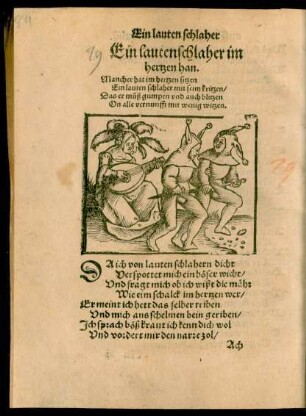 Ein lauten schlaher
Ein lautenschlaher im
hertzen han.
Mancher hat im hertzen sitzen
Ein lauten schlaher mit seim kritzen/
Das er müß gumpen vnd auch blitzen
On alle vernunfft mit wenig witzen.
DA ich von lauten schlahern dicht
Verspottet mich ein böser wicht/
Vnd fragt mich ob ich wißt die mähr
Wie eim schalck im hertzen wer/
Er meint ich hett das selber triben
Vnd mich ans schelmen bein geriben/
Ich sprach böß kraut ich kenn dich wol
Vnd vordert mir den narrezol/
Ach